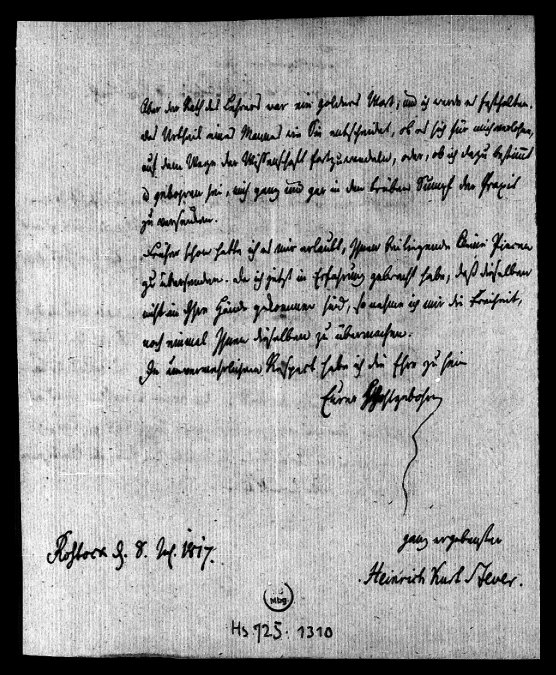 Aber der Rath des Lehrers war ein goldnes Wort, und ich werde es festhalten.
das Urtheil eines Mannes wie Sie entscheidet, ob es sich für mich verlohne,
auf dem Wege der Wissenschaft fortzuwandeln, oder, ob ich dazu bestimmt
u gebohren sei, mich ganz und gar in den trüben Sumpf der Praxis
zu versenken.
Früher schon hatte ich es mir erlaubt, Ihnen beiliegende kleine Piecen
zu übersenden. da ich jetzt in Erfahrung gebracht habe, daß dieselben
nicht in Ihre Hände gekommen sind, so nehme ich mir die Freiheit,
noch einmal Ihnen dieselben zu übermachen.
In Respect habe ich die Ehre zu sein
Eurer Wohlgebohrn
ganz ergebenster
Rostock d. 8. 1817.
Heinrich Karl Stever.
Mbg
Hs. 725. 1310